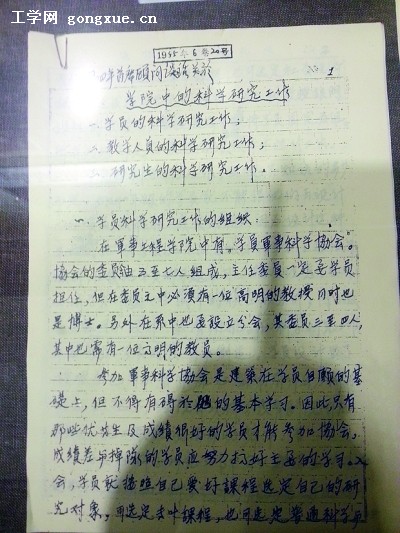 工学网 gongxue.cn
1955年6月20号
首席顾问谈话关於
№ 1
学院中的科学研究工作
一.学员的科学研究工作；
二.教学人员的科学研究工作；
三.研究生的科学研究工作。
一.学员科学研究工作的组织：
在軍事工程学院中有"学員軍事科学協会"。
協会的委員由五至七人组成，主任委員一定要学員
担任，但在委員之中必须有一位高明的教授同时也
是博士。另外在系中也要設立分会，其委員三至四人，
其中也需有一位高明的教員。
参加軍事科学協会是建築在学員自願的基
礎上，但不得有碍於的基本学习。因此只有
那些优等生及成績很好的学員才能参加協会，
成績差的学員应努力搞好主要的学习。入
会，学員就按照自己爱好課程选定自己的研
究对象。可选定专业課程，也可选定普通科学